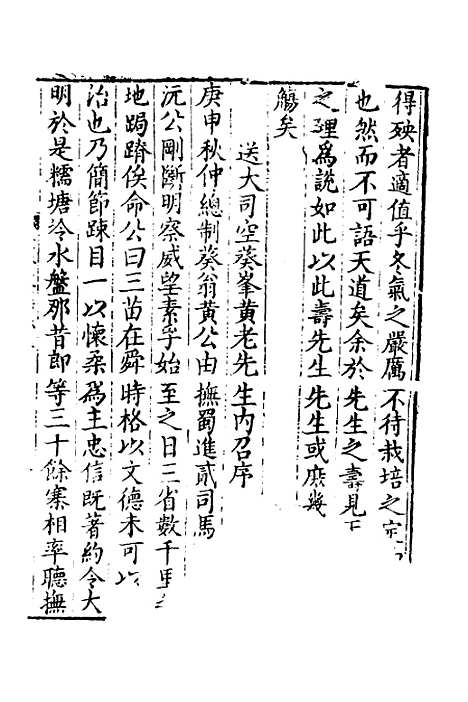 得殃者適值乎冬氣之嚴厲不待栽培之
也然而不可語天道矣余於先生之壽見
之理為說如此以此壽先生先生或庶幾
觴矣
送大司空葵峯黃老先生內召序
庚申秋仲總制葵翁黃公由撫蜀進貳司馬
沅公剛斷明察威望素孚始至之日三省數千里
地跼蹐俟命公曰三苗在舜時格以文德未可以
治也乃簡節踈目一以懷柔為主忠信既著約令大
明於是糯塘冷水盤那昔郎等三十餘寨相率聽撫